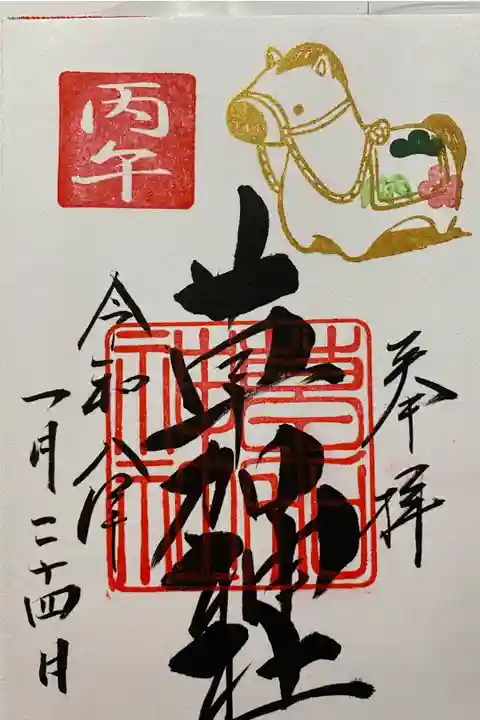 丙午
奉拝
草加神社
草加
神社
令和八年
一月二十四日